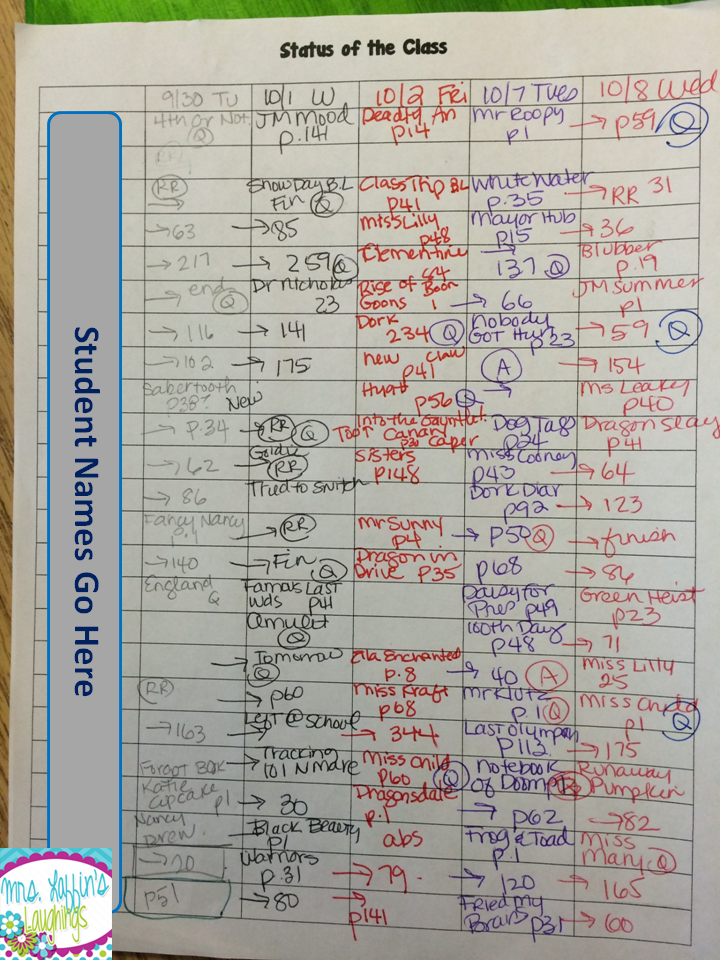 Status of the Class
9/30 Tu 10/1 W 10/2 Fri 10/7 Tues 10/8 Wed
4th or Not JM Mood Deadly An Mr Roopy → p59 Q
Q p.141 p14 p1
RR
RR Snow Day B.L Class Trip BL White Water → RR 31
→ Fin Q p41 p.35
→ 63 → 85 Miss Lilly Mayor Hub → 36
p48 p15
→ 217 → 259 Q Clementine → Blubber
64 137 Q p.19
→ end Dr Nicholas Rise of Boon → 66 JM Summer
Q 23 Goons 1 p1
→ 116 → 141 Dork Nobody → 59 Q
234 Q Got Hur p23
→ 102 → 175 new claw A → 154
p41
Sabertooth New Hyatt → Ms Leakey
p38? p56 Q p40
→ P.34 → RR Q Into the Gauntlet Dog Tags Dragon Slay
Toot Canari Caper p24 p41
→ 62 Goldie Sisters Miss Cooney → 64
RR p148 p43
→ 86 Tried to Snitch Dork Diar → 123
p92
Fancy Nancy → RR Mr Sunny → p50 Q → finish
p4
→ 140 → Fin Q Dragon in p68 → 86
Drive p35
England Famous Last Daisy for Green Heist
Q Wds p41 Pres p49 p23
Amulet 100th Day → 71
Q p48
→ Tomorrow Ella Enchanted → 40 A Miss Lilly
Q p.8 25
RR → p60 Miss Kraft Mr Klutz Miss Child
p68 p.1 Q p1 Q
→ 163 Left @ School → 344 Last Olympian → 175
→ p113
Forgot Book → Tracking Miss Child Notebook Runaway
101 N more p60 Q of Doom Pumpkin
Katie → 30 Dragonsdale → p62 → 82
Cupcake p1 p.1
Nancy → Black Beauty abs Frog & Toad Miss
Drew p1 p.1 Mary Q
→ 20 Warriors → 79 → 120 → 165
p.31
p51 → 80 → Fried My → 60
p141 Brars p31
Student Names Go Here
Mrs. Laffin's
Laughings